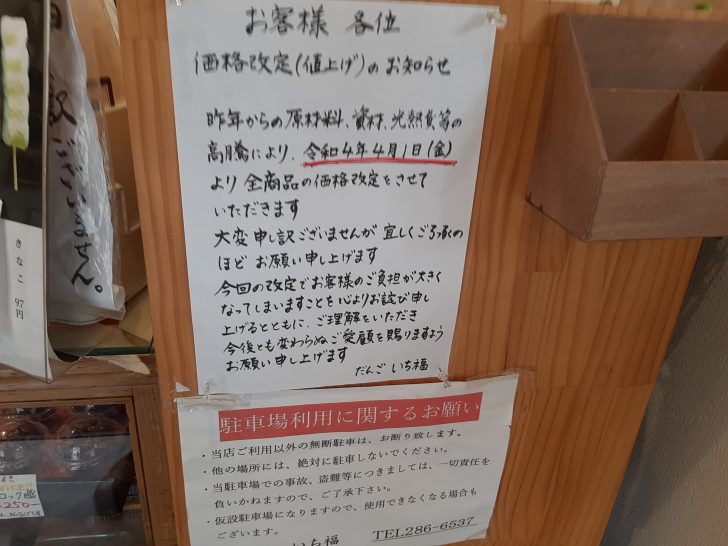 お客様 各位
価格改定(値上げ)のお知らせ
昨年からの原材料、資材、光熱費等の
高騰により、令和4年4月1日(金)
より 全商品の価格改定をさせて
いただきます
大変申し訳ございませんが 宜しくご了承の
ほど お願い申し上げます
今回の改定でお客様のご負担が大きく
なってしまいますことを心よりお詫び申し
上げるとともに、ご理解をいただき
今後とも変わらぬご愛顧を賜りますよう
お願い申し上げます
だんご いち福
駐車場利用に関するお願い
・当店ご利用以外の無断駐車は、お断り致します。
・他の場所には、絶対に駐車しないでください。
・当駐車場での事故、盗難等につきましては、一切責任を
負いかねますので、ご了承下さい。
・仮設駐車場になりますので、使用できなくなる場合も
ございます。
いち福 TEL286-6537
訳ございません。
きなこ 97円
250-